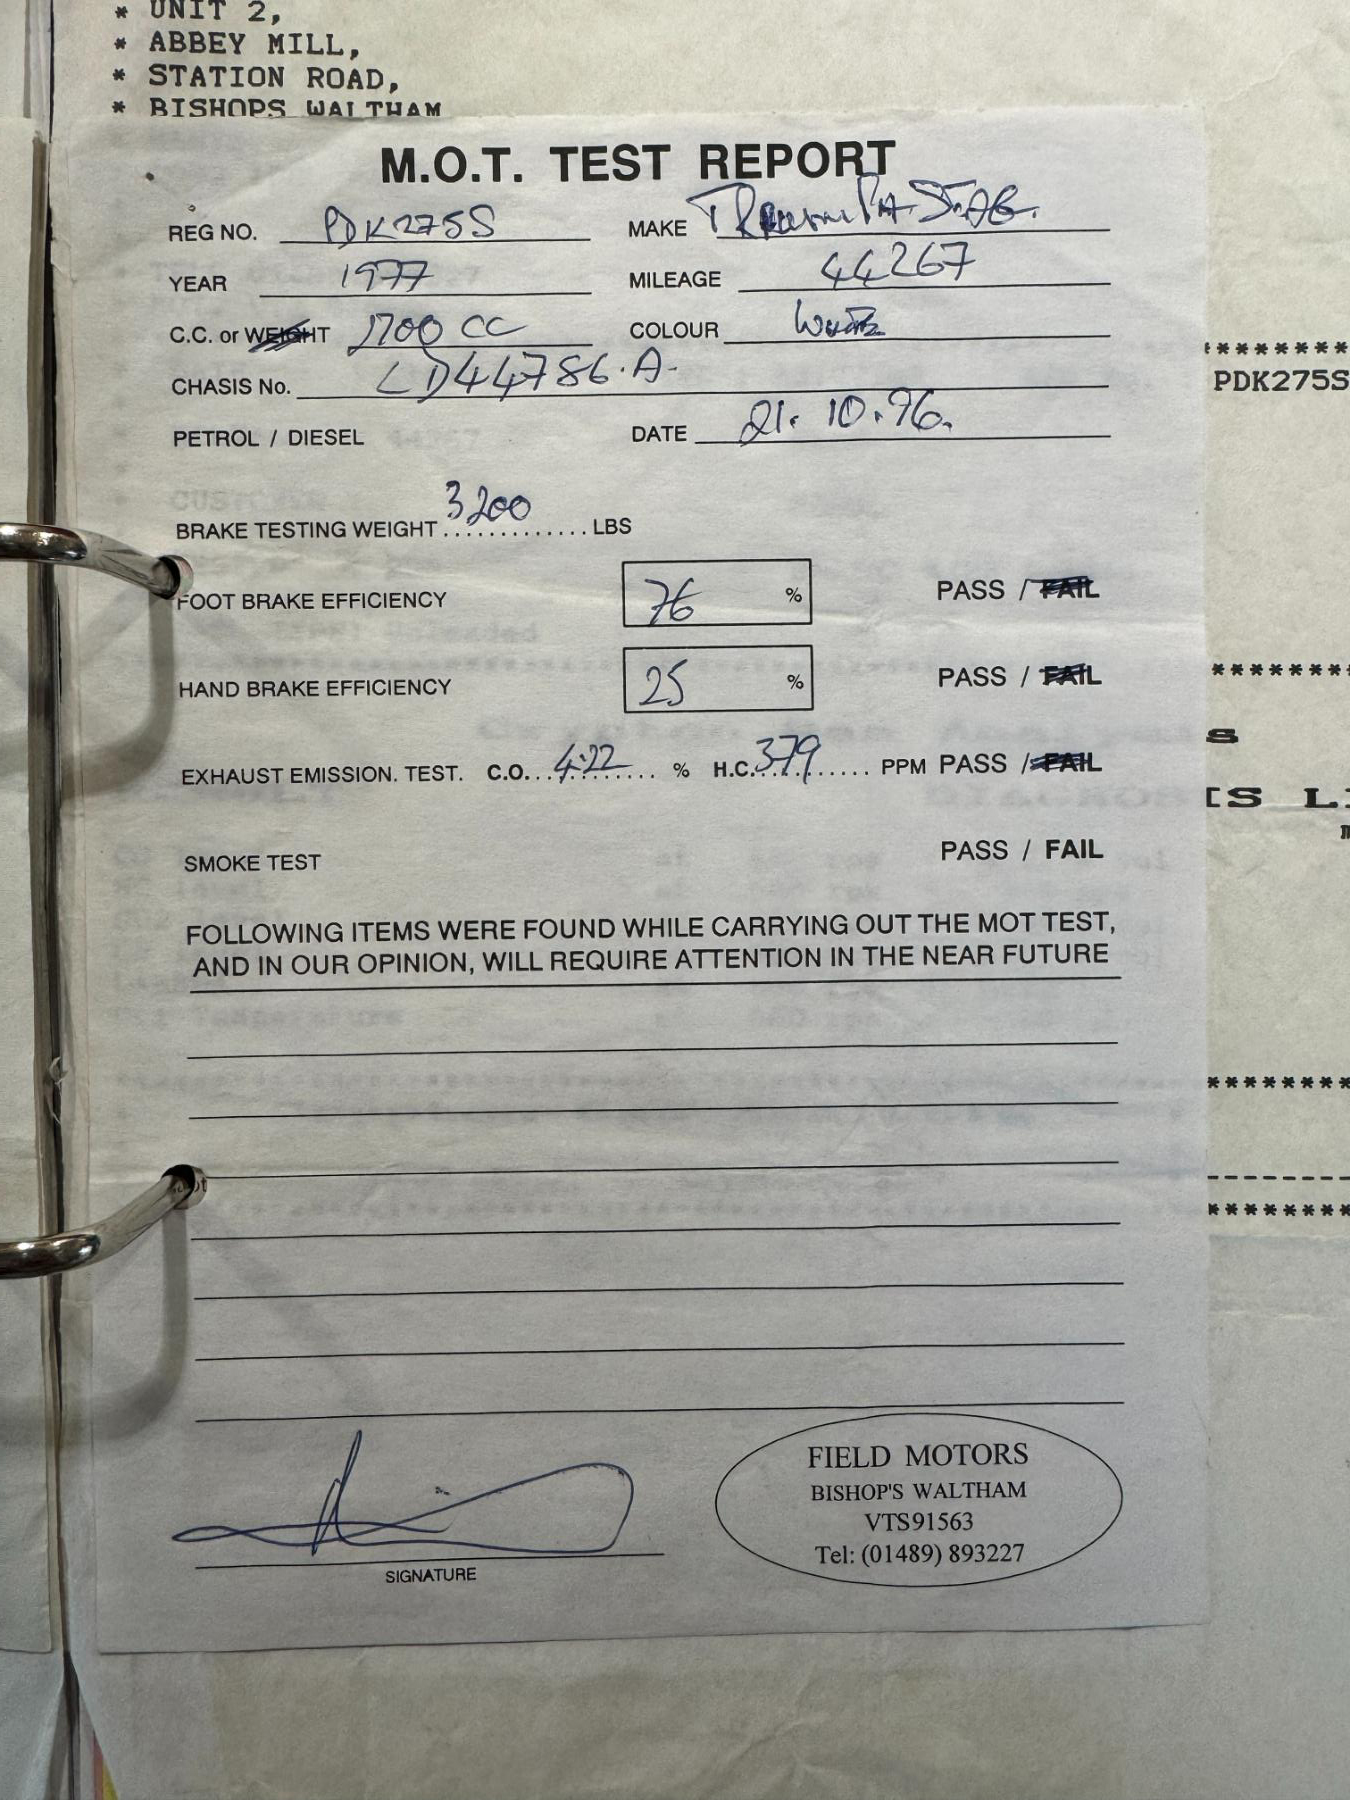 * UNIT 2,
* ABBEY MILL,
* STATION ROAD,
* BISHOPS WALTHAM
M.O.T. TEST REPORT
REG NO. PDK275S MAKE TRIUMPH STAG.
YEAR 1977 MILEAGE 44267
C.C. or WEIGHT 2700 CC COLOUR White
CHASIS No. LD44786.A.
PETROL / DIESEL DATE 21.10.96.
********
PDK275S
BRAKE TESTING WEIGHT 3200 ............. LBS
FOOT BRAKE EFFICIENCY 76 % PASS / FAIL
HAND BRAKE EFFICIENCY 25 % PASS / FAIL
EXHAUST EMISSION. TEST. C.O... 4.22 ........ % H.C. 379 ........ PPM PASS / FAIL
SMOKE TEST PASS / FAIL
FOLLOWING ITEMS WERE FOUND WHILE CARRYING OUT THE MOT TEST,
AND IN OUR OPINION, WILL REQUIRE ATTENTION IN THE NEAR FUTURE
SIGNATURE
FIELD MOTORS
BISHOP'S WALTHAM
VTS91563
Tel: (01489) 893227